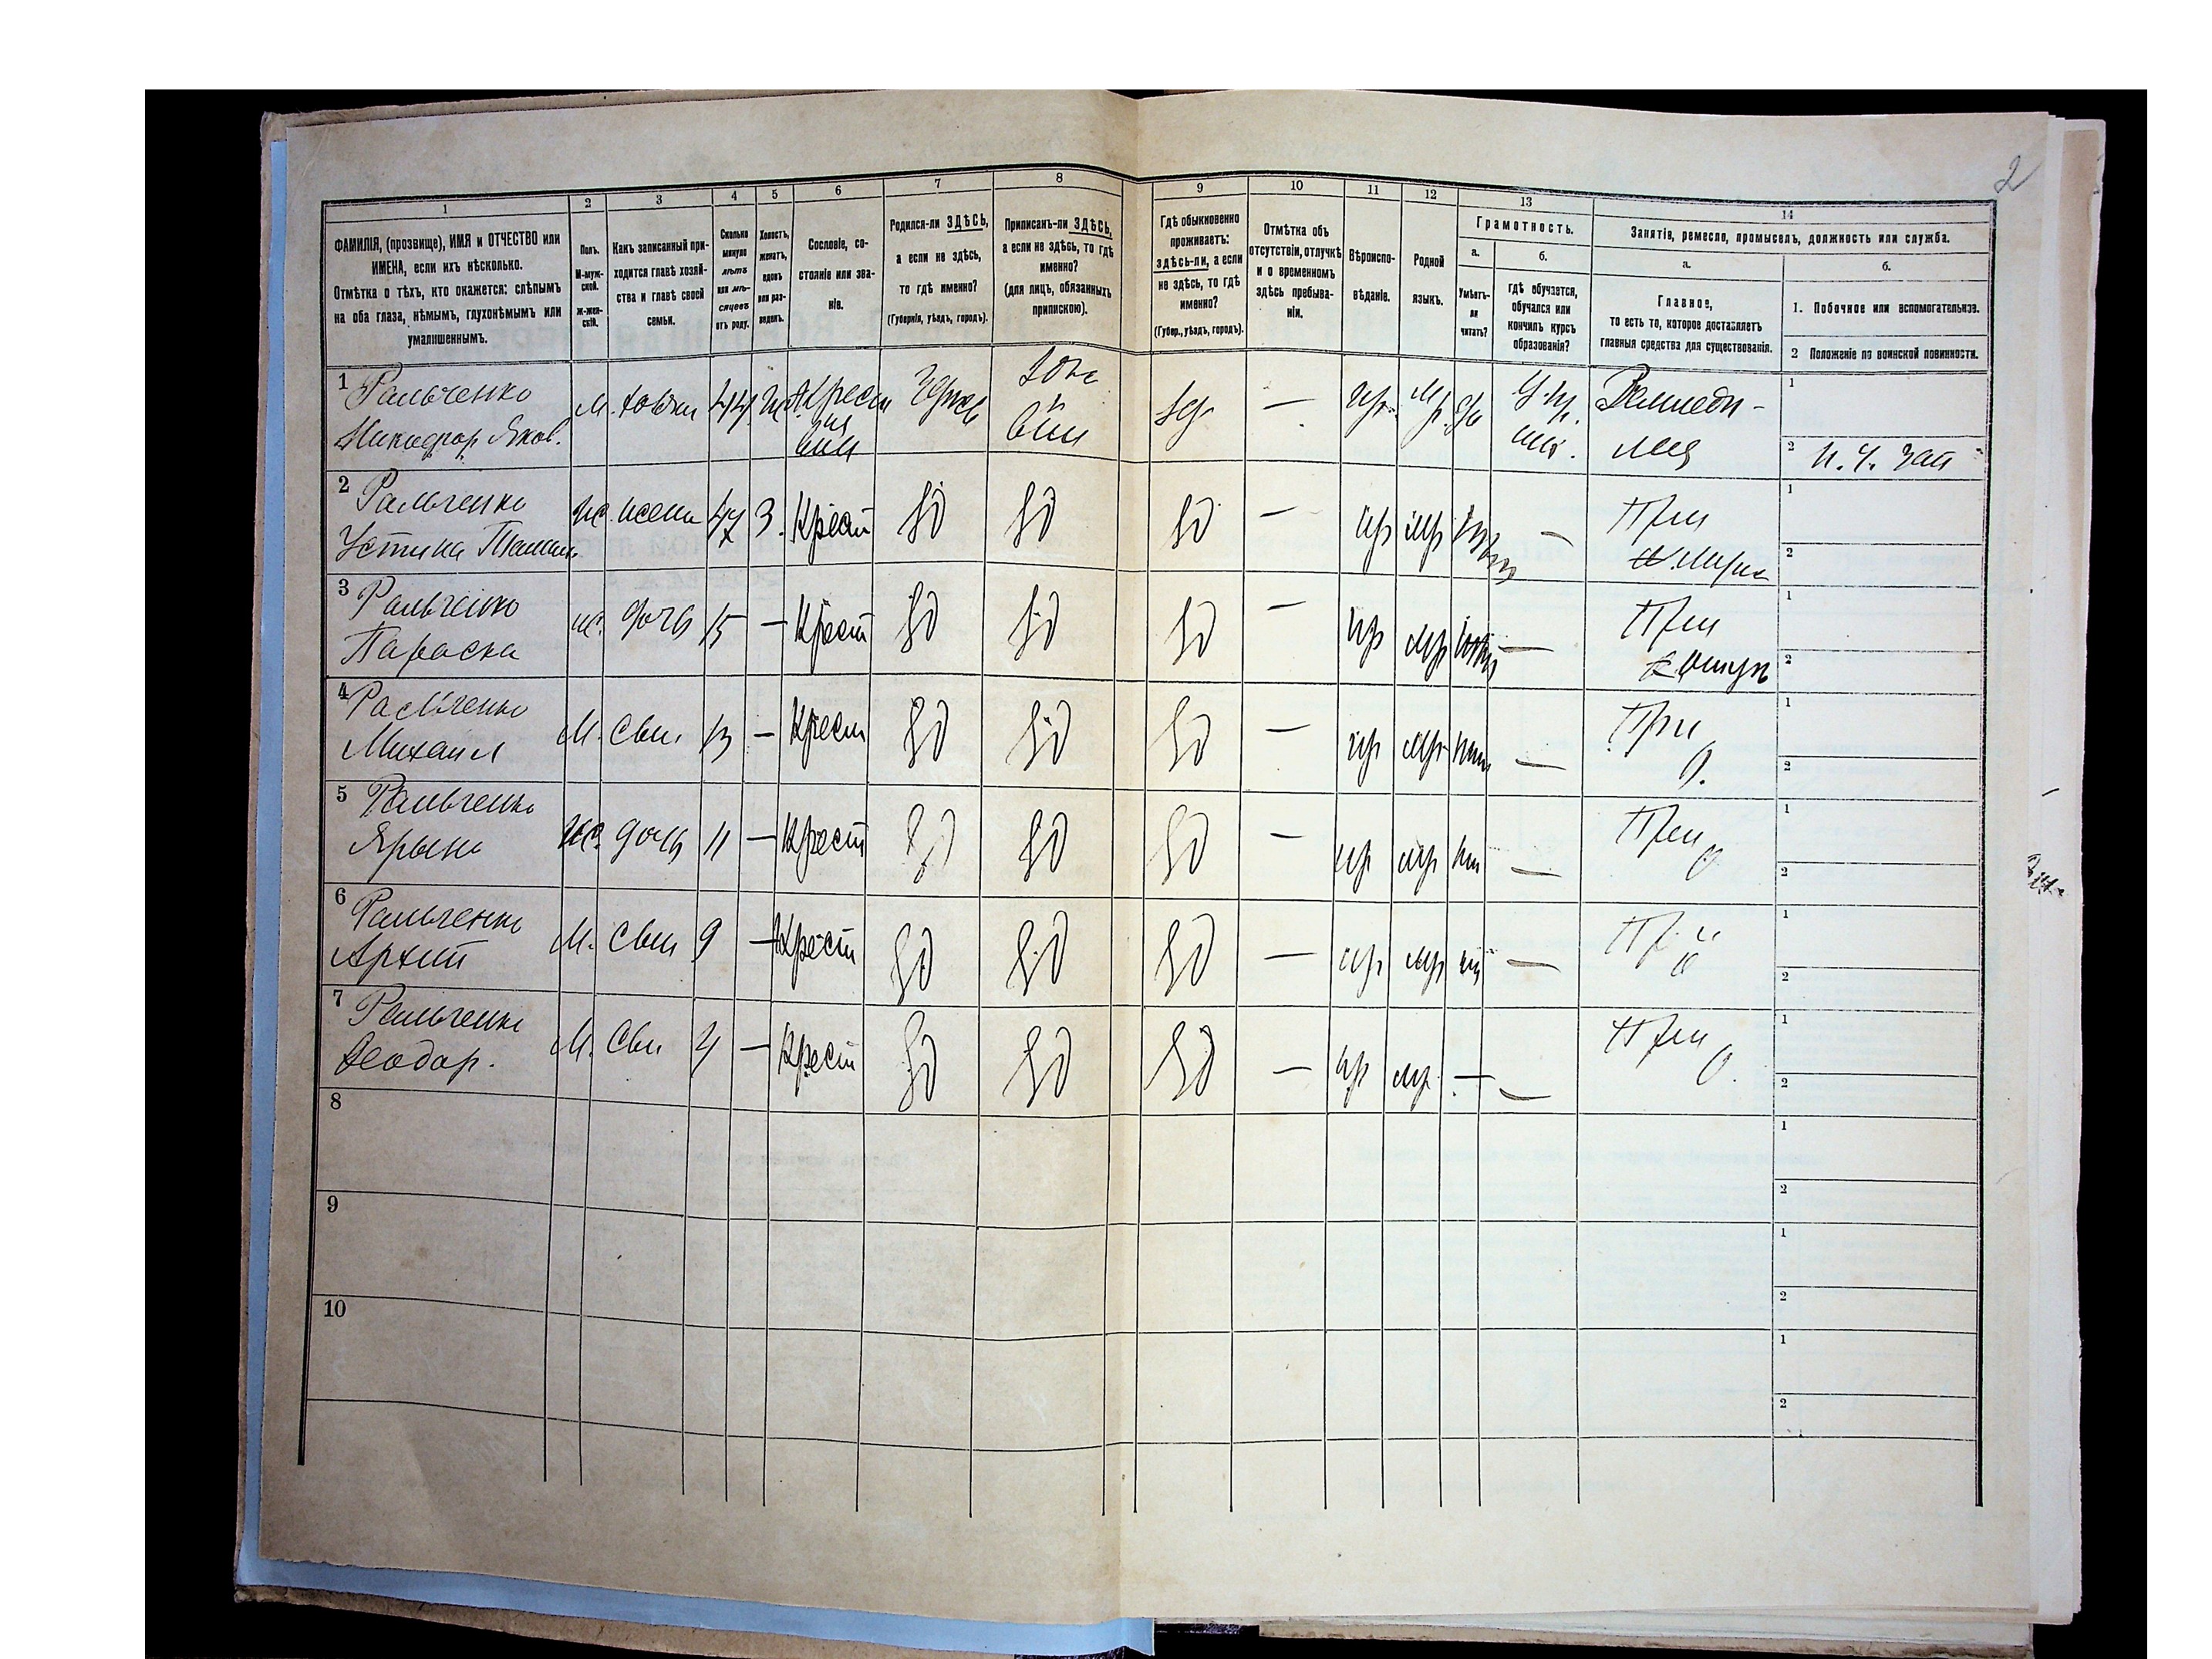 2
1 2 3 4 5 6 7 8 9 10 11 12 13 14
ФАМИЛІЯ, (прозвище), ИМЯ и ОТЧЕСТВО или
ИМЕНА, если ихъ нѣсколько.
Отмѣтка о тѣхъ, кто окажется: слѣпымъ
на оба глаза, нѣмымъ, глухонѣмымъ или
умалишеннымъ.
Полъ.
М-муж-
ской.
ж-жен-
скій.
Какъ записанный при-
ходится главѣ хозяй-
ства и главѣ своей
семьи.
Сколько
минуло
лѣтъ
или мѣ-
сяцевъ
отъ роду.
Холостъ,
женатъ,
вдовъ
или раз-
веденъ.
Сословіе, со-
стояніе или зва-
ніе.
Родился-ли ЗДѢСЬ,
а если не здѣсь,
то гдѣ именно?
(Губернія, уѣздъ, городъ).
Приписанъ-ли ЗДѢСЬ,
а если не здѣсь, то гдѣ
именно?
(для лицъ, обязанныхъ
припискою).
Гдѣ обыкновенно
проживаетъ:
здѣсь-ли, а если
не здѣсь, то гдѣ
именно?
(Губер., уѣздъ, городъ).
Отмѣтка объ
отсутствіи, отлучкѣ
и о временномъ
здѣсь пребыва-
ніи.
Вѣроиспо-
вѣданіе.
Родной
языкъ.
Грамотность.
а.
Умѣетъ-
ли
читать?
б.
Гдѣ обучается,
обучался или
кончилъ курсъ
образованія?
Занятія, ремесло, промыселъ, должность или служба.
а.
Главное,
то есть то, которое доставляетъ
главныя средства для существованія.
б.
1. Побочное или вспомогательное.
2 Положеніе по воинской повинности.
1 Рамченко М. хозяин 44 Крест Здѣсь зд — пр. м.р. да 1
Никифор Яков. 2
2 Рамченко ж. жена 47 З. Крест зд зд зд — пр мр — При 1
Устина 2
3 Рамченко ж. дочь 15 — Крест зд зд зд — пр мр — При 1
Параска 2
4 Рамченко М. Сын 13 — Крест зд зд зд — пр мр — При 1
Михаил О. 2
5 Рамченко ж. дочь 11 — Крест зд зд зд — пр мр — При 1
Ярына О 2
6 Рамченко М. Сын 9 — Крест зд зд зд — пр мр — При 1
Архип О 2
7 Рамченко М. Сын 4 — Крест зд зд зд — пр мр — — При 1
Феодор. О. 2
8 1
2
9 1
2
10 1
2